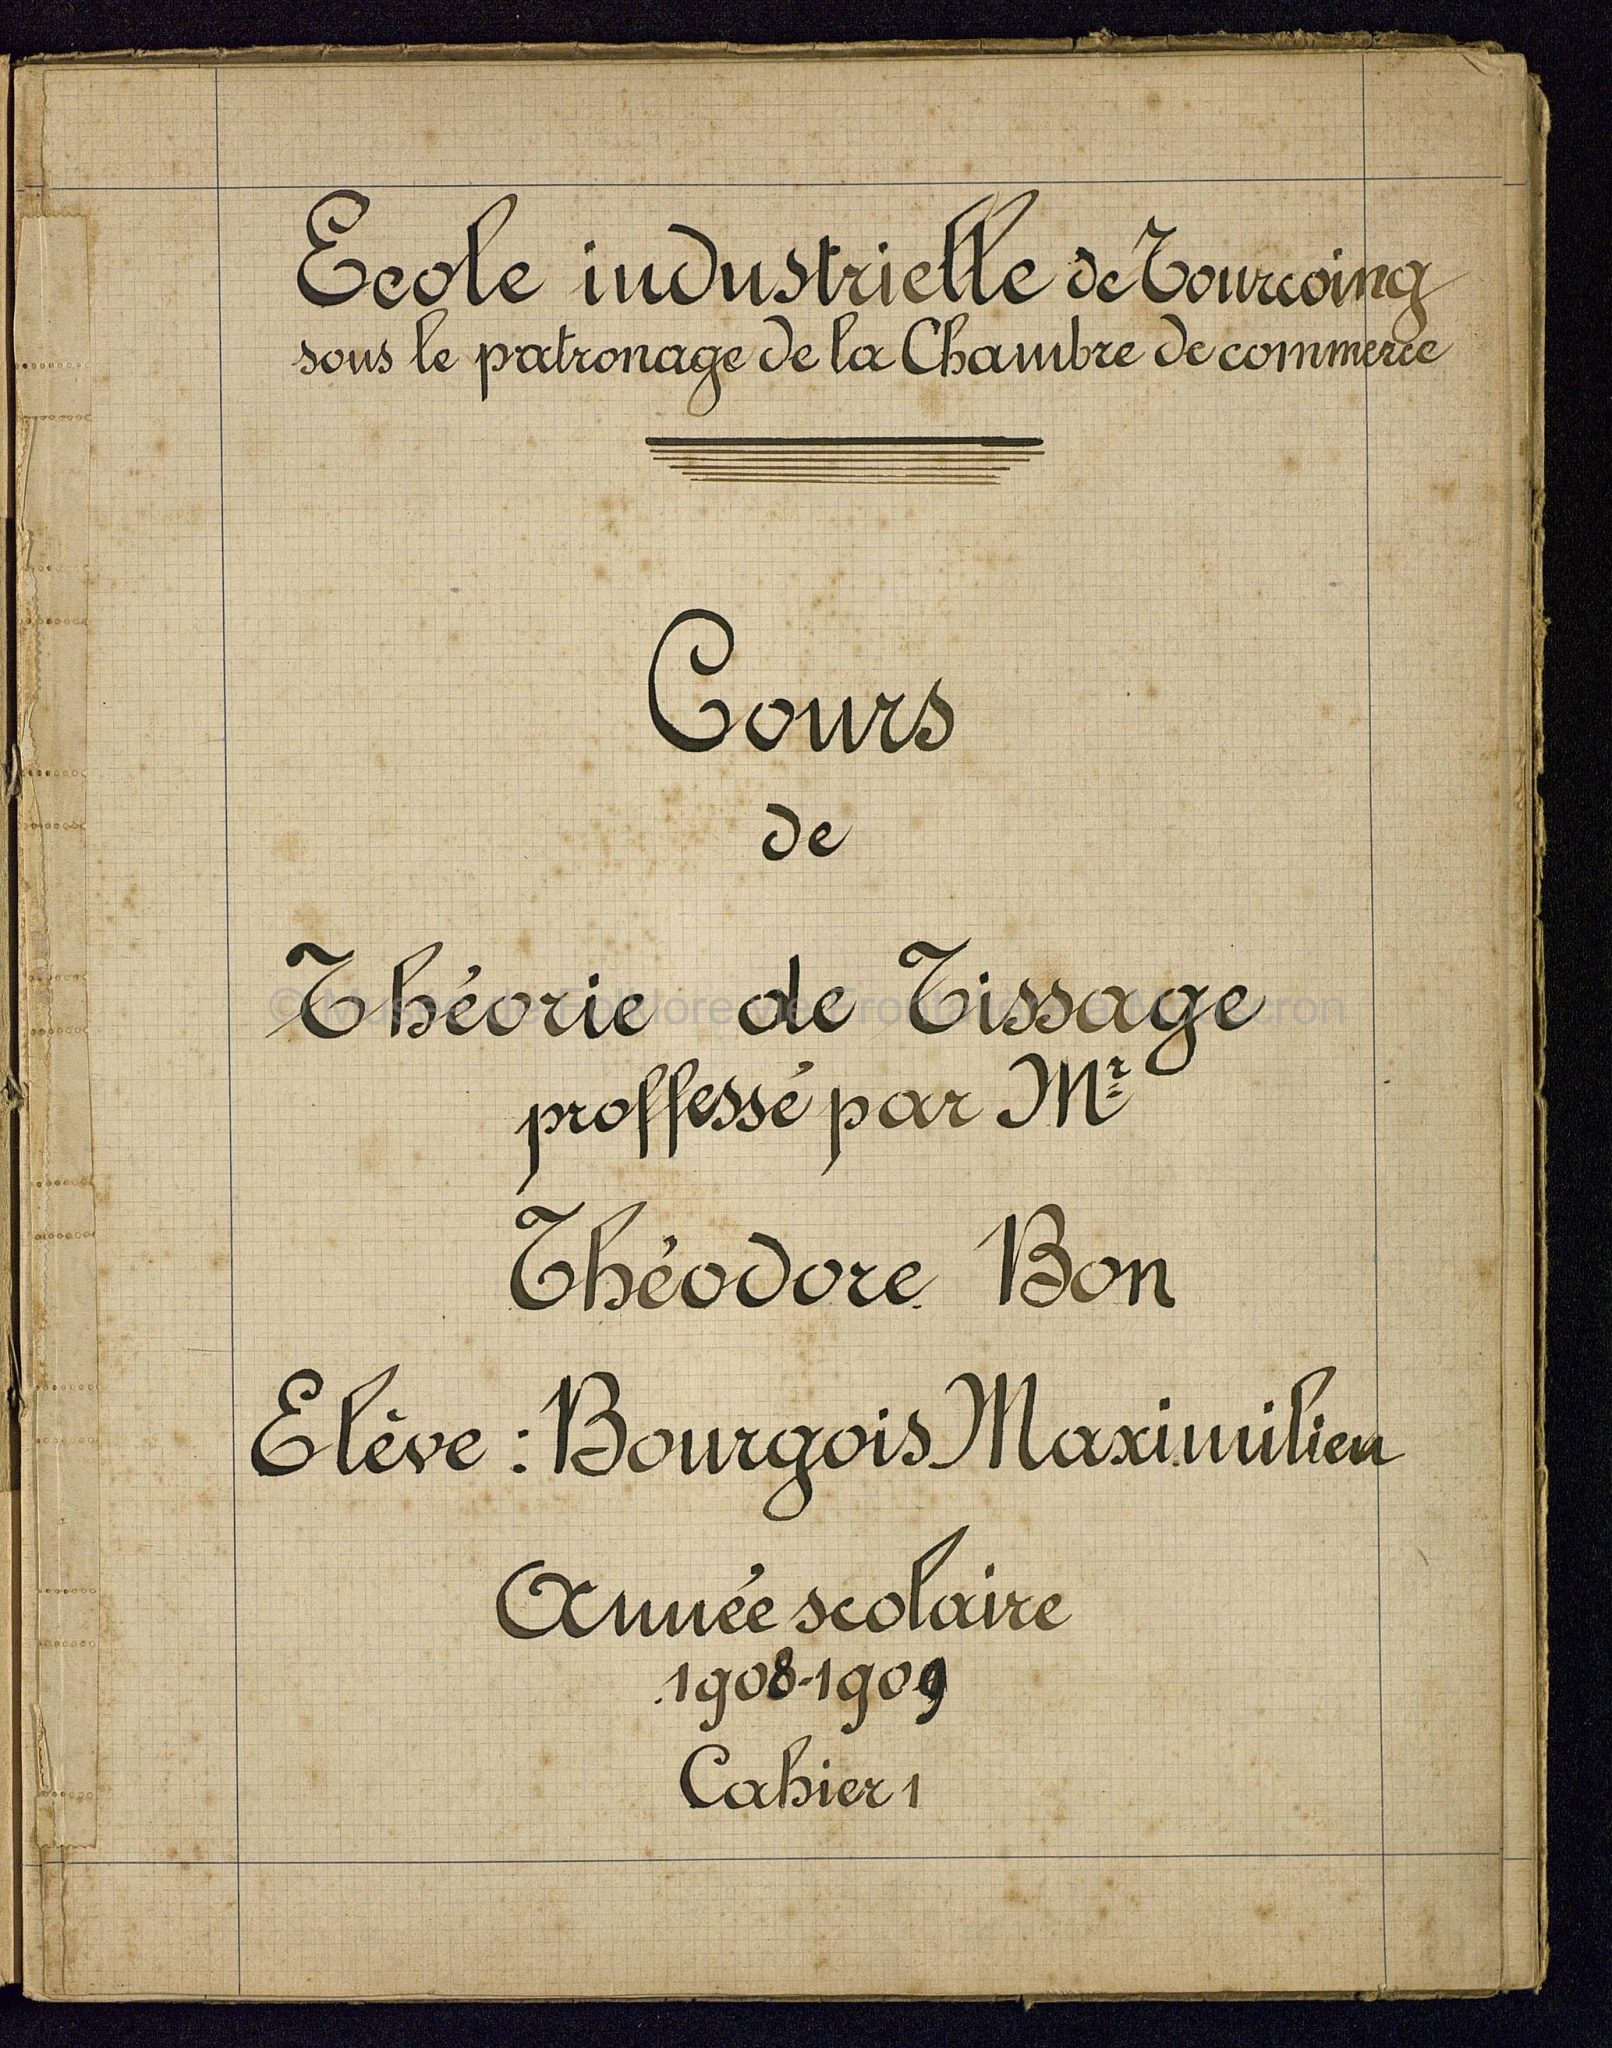 Ecole industrielle de Tourcoing
sous le patronage de la Chambre de commerce
Cours
de
Théorie de Tissage
© Musée de Folklore vie Frontalière Mouscron
proffessé par Mr
Théodore Bon
Elève : Bourgois Maximilien
Année scolaire
1908-1909
Cahier 1